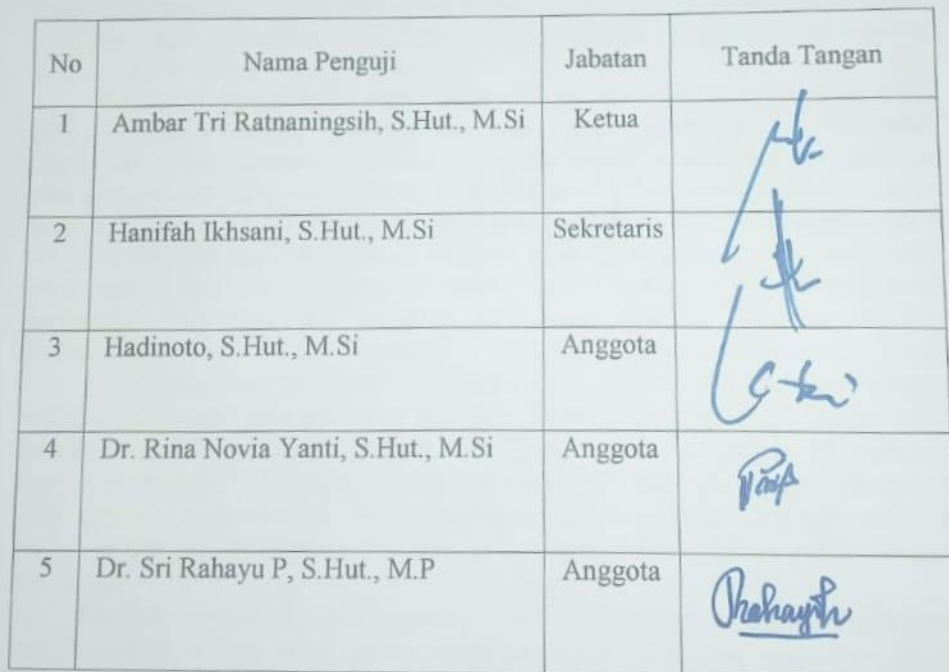 No Nama Penguji Jabatan Tanda Tangan
1 Ambar Tri Ratnaningsih, S.Hut., M.Si Ketua
2 Hanifah Ikhsani, S.Hut., M.Si Sekretaris
3 Hadinoto, S.Hut., M.Si Anggota
4 Dr. Rina Novia Yanti, S.Hut., M.Si Anggota
5 Dr. Sri Rahayu P, S.Hut., M.P Anggota